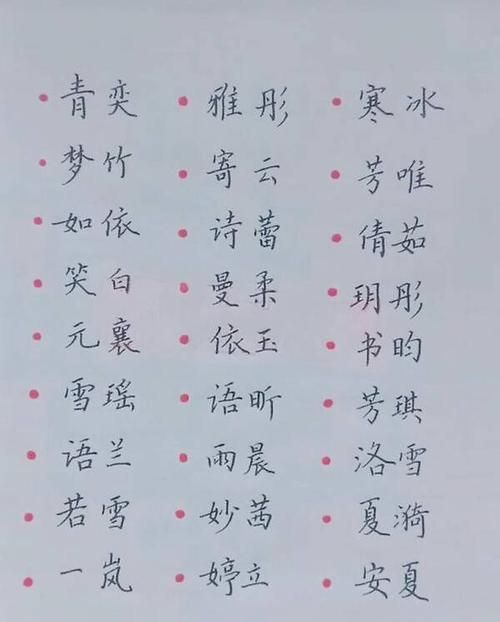 青奕 雅彤 寒冰
梦竹 寄云 芳唯
如依 诗蕾 倩茹
笑白 曼柔 玥彤
元襄 依玉 书昀
雪瑶 语昕 芳琪
语兰 雨晨 洛雪
若雪 妙茜 夏漪
一岚 婷立 安夏